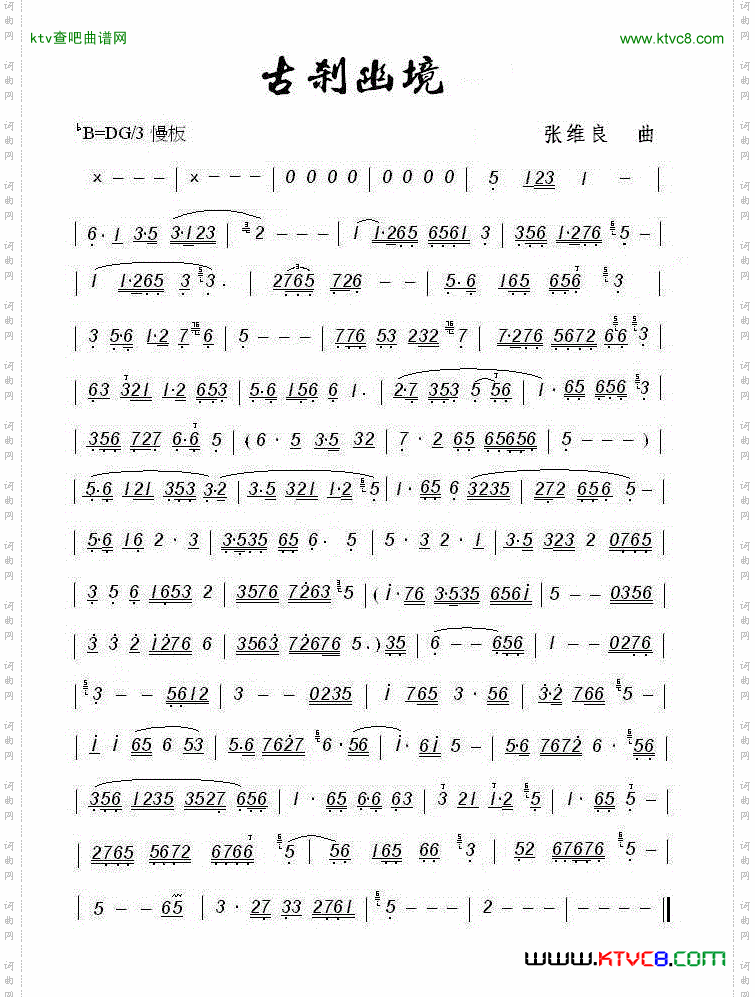 ktv查吧曲谱网 www.ktvc8.com
古刹幽境
♭B=DG/3 慢板 张维良 曲
x - - - | x - - - | 0 0 0 0 | 0 0 0 0 | 5 123 1 - |
| 6· 1 3·5 3·123 | 2 - - - | 1 1·265 6561 3 | 356 1·276 5 - |
| 1 1·265 3 3· | 2765 726 - - | 5·6 165 656 3 |
| 3 5·6 1·2 7 6 | 5 - - - | 776 53 232 7 | 7·276 5672 66 3 |
| 63 321 1·2 653 | 5·6 156 6 1· | 2·7 353 5 56 | 1· 65 656 3 |
| 356 727 6·6 5 | (6· 5 3·5 32 | 7· 2 65 65656 | 5 - - - ) |
| 5·6 121 353 3·2 | 3·5 321 1·2 5 | 1· 65 6 3235 | 272 656 5 - |
| 5·6 16 2· 3 | 3·535 65 6· 5 | 5· 3 2· 1 | 3·5 323 2 0765 |
| 3 5 6 1653 2 | 3576 7263 5 | (1·76 3·535 6561 | 5 - - 0356 |
| 3 3 2 1276 6 | 3563 72676 5·) 35 | 6 - - 656 | 1 - - 0276 |
| 3 - - 5612 | 3 - - 0235 | 1 765 3· 56 | 3·2 766 5 - |
| 1 1 65 6 53 | 5·6 7627 6· 56 | 1· 61 5 - | 5·6 7672 6· 56 |
| 356 1235 3527 656 | 1· 65 6·6 63 | 3 21 1·2 5 | 1· 65 5 - |
| 2765 5672 6766 5 | 56 165 66 3 | 52 67676 5 - |
| 5 - - 65 | 3· 27 33 2761 | 5 - - - | 2 - - - | - - - - ||
www.KTVC8.com
词曲网